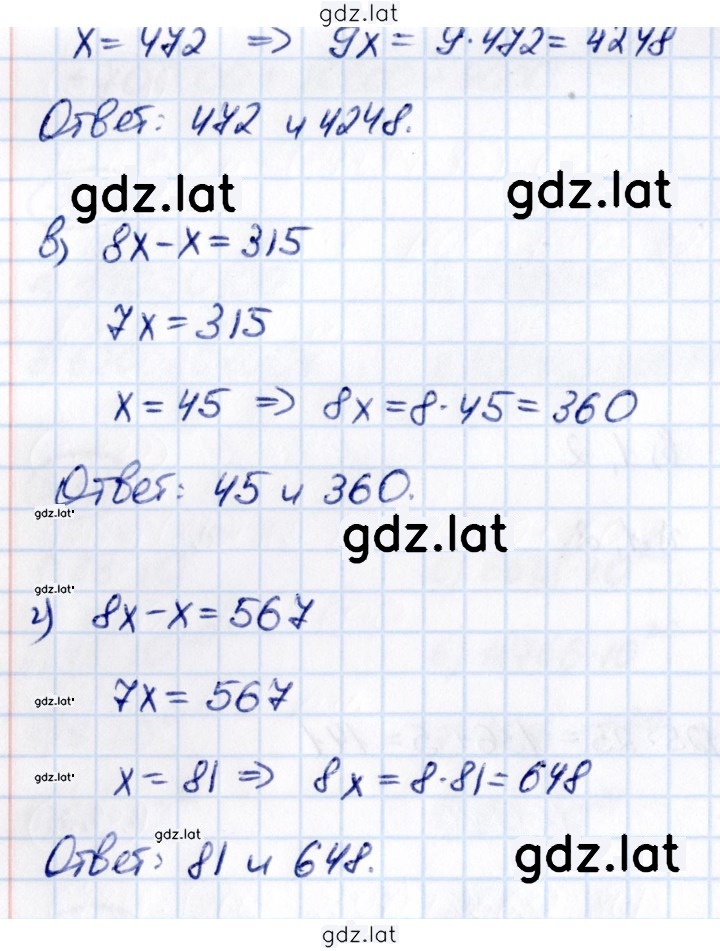 gdz.lat
x = 472 => 9x = 9·472 = 4248
Ответ: 472 и 4248.
gdz.lat gdz.lat
в) 8x - x = 315
7x = 315
x = 45 => 8x = 8·45 = 360
Ответ: 45 и 360.
gdz.lat
gdz.lat
gdz.lat
г) 8x - x = 567
gdz.lat 7x = 567
gdz.lat x = 81 => 8x = 8·81 = 648
gdz.lat
Ответ: 81 и 648. gdz.lat
gdz.lat